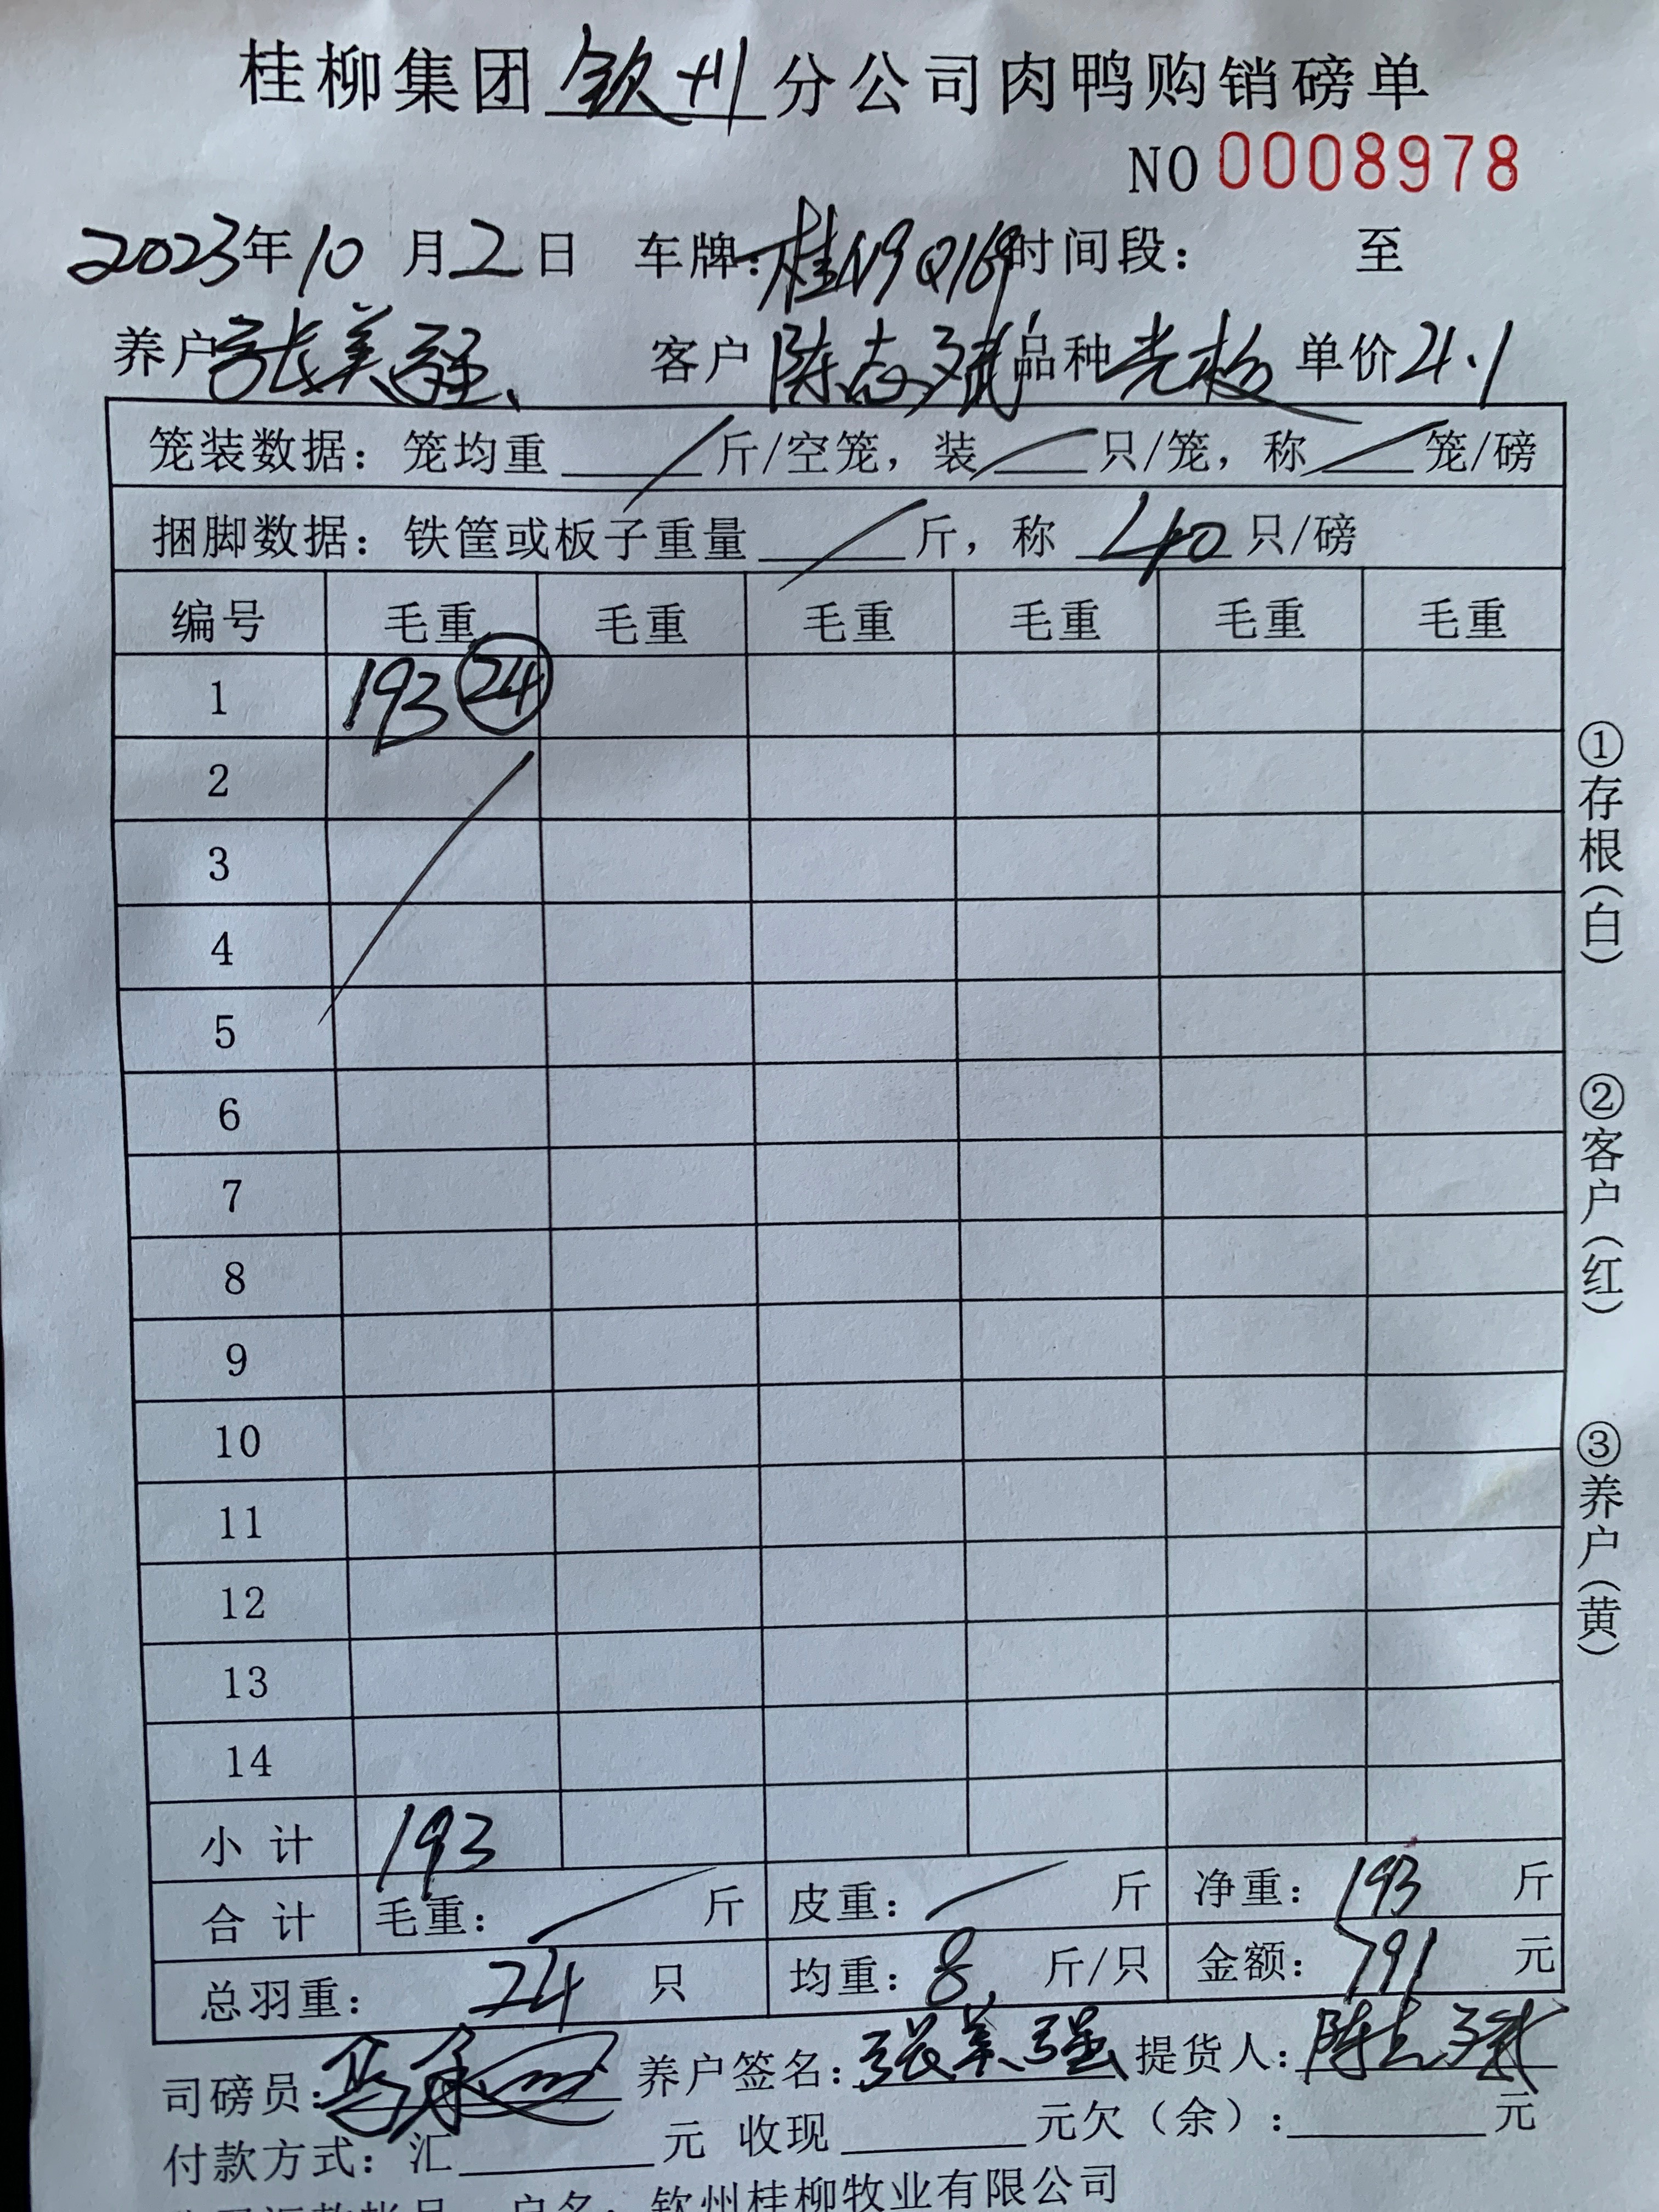 桂柳集团钦州分公司肉鸭购销磅单
NO 0008978
2023年10月2日 车牌：桂N9Q169 时间段： 至
养户 张美强 客户 陈志斌 品种 单价4.1
笼装数据：笼均重 斤/空笼，装 只/笼，称 笼/磅
捆脚数据：铁筐或板子重量 斤，称 40 只/磅
编号 毛重 毛重 毛重 毛重 毛重 毛重
1 193 24
2
3
4
5
6
7
8
9
10
11
12
13
14
小计 193
合计 毛重： 斤 皮重： 斤 净重：193 斤
总羽重：24 只 均重：8 斤/只 金额：791 元
司磅员： 养户签名：张美强 提货人：陈志斌
付款方式：汇 元 收现 元欠（余）： 元
户名：钦州桂柳牧业有限公司
①存根（白）
②客户（红）
③养户（黄）